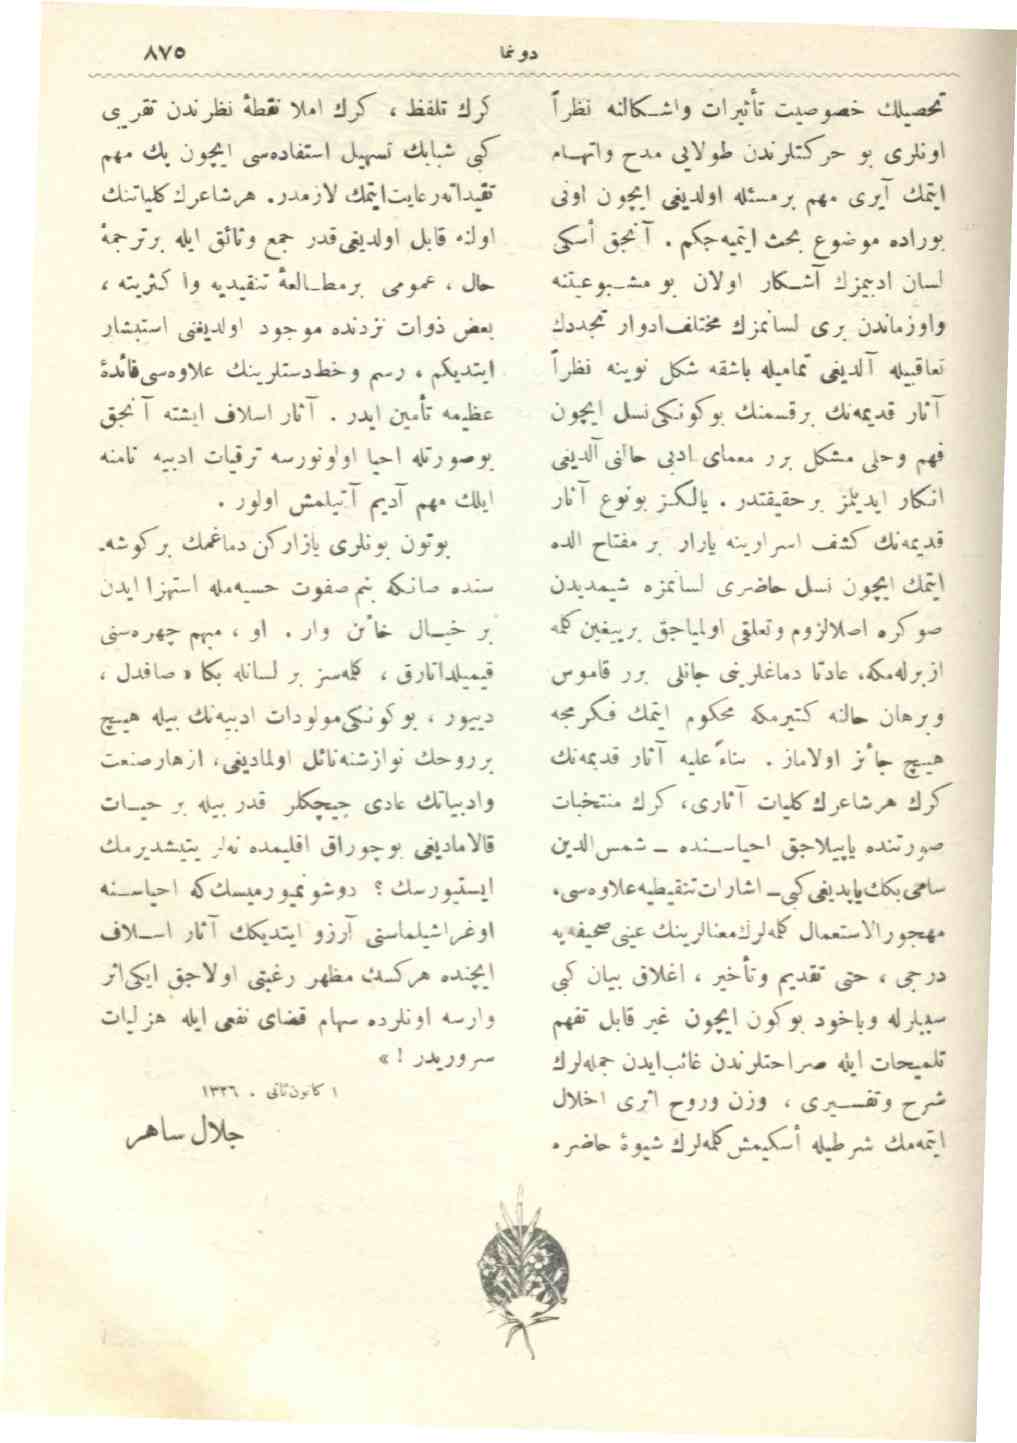 دونما
٨٧٥
تحصيللك خصوصيت تأثيرات واشـكالنه نظراً
اونلری بو حركتلرندن طولایی مدح واتهـام
ايتمك آيری مهم برمسئله اولديغی ايچون اونی
بوراده موضوع بحث ايتميه‌جكم . آنجق أسكی
لسان ادبيمزك آشـكار اولان بو مشـبوعيتنه
واوزماندن بری لسانمزك مختلف ادوار تجددك
تعاقبيله آلديغی تماميله باشقه شكل نوينه نظراً
آثار قديمه‌نك برقسمنك بوكونكی نسل ايچون
فهم وحلی مشكل برر معمای ادبی حالنی آلديغی
انكار ايديلمز برحقيقتدر . يالكـز بونوع آثار
قديمه‌نك كشف اسرارينه يارار بر مفتاح الده
ايتمك ايچون نسل حاضری لسانمزه شيمديدن
صوكره اصلا لزوم وتعلقی اولمياجق بريیغين كلمه
ازبرله‌مكه، عادتا دماغلرينی جانلی برر قاموس
وبرهان حالنه كتيرمكه محكوم ايتمك فـكرمجه
هيـچ جائز اولاماز . بناءً عليه آثار قديمه‌نك
كرك هرشاعرك كليات آثاری، كرك منتخبات
صورتنده ياپيلاجق احياسـنده ـ شمس الدين
سامی بكك ياپديغی كبی ـ اشارات تنقيطيه علاوه‌سی،
مهجور الاستعمال كلمه‌لرك معنالرينك عينی صحيفه‌يه
درجی ، حتی تقديم وتأخير ، اغلاق بيان كبی
سببلرله وياخود بوكون ايچون غير قابل تفهم
تلميحات ايله صراحتلرندن غائب ايدن جمله‌لرك
شرح وتفسـيری ، وزن وروح اثری اخلال
ايتمه‌مك شرطيله أسكيمش كلمه‌لرك شيوۀ حاضره
كرك تلفظ ، كرك املا نقطۀ نظرندن تقريبی
كبی شبابك تسهيل استفاده‌سی ايچون پك مهم
تقيداته رعايت ايتمك لازمدر. هرشاعرك كلياتنك
اولنه قابل اولديغی قدر جمع وثائق ايله برترجمۀ
حال ، عمومی برمطـالعۀ تنقيديه وا كثريته ،
بعض ذوات نزدنده موجود اولديغنی استبشار
ايتديكم ، رسم وخط دستلرينك علاوه‌سی فائدۀ
عظيمه تأمين ايدر . آثار اسلاف ايشته آنجق
بوصورتله احيا اولونورسه ترقيات ادبيه نامنه
ايلك مهم آديم آتيلمش اولور .
بوتون بونلری يازاركن دماغمك بركوشه‌ـ
سنده صانكه بنم صفوت حسيه‌مله استهزا ايدن
بر خيـال خائن وار . او ، مبهم چهره‌سنی
قيميلداتارق ، كلمه‌سز بر لسانله بكا « صافدل ،
دييور ، بوكونكی مولودات ادبيه‌نك بيله هيـچ
برروحك نوازشنه نائل اولماديغی، ازهار صنعت
وادبياتك عادی چيچكلر قدر بيله بر حيـات
قالاماديغی بوچوراق اقليمده نه‌لر يتيشديرمك
ايستيورسك ؟ دوشونميورميسك كه احياسـنه
اوغراشيلماسنی آرزو ايتديكك آثار اسـلاف
ايچنده هركسك مظهر رغبتی اولاجق ايكی اثر
وارسه اونلرده سهام قضای نفعی ايله هزليات
سروريدر ! »
١ كانون ثانی ، ١٣٢٦
جلال ساهر